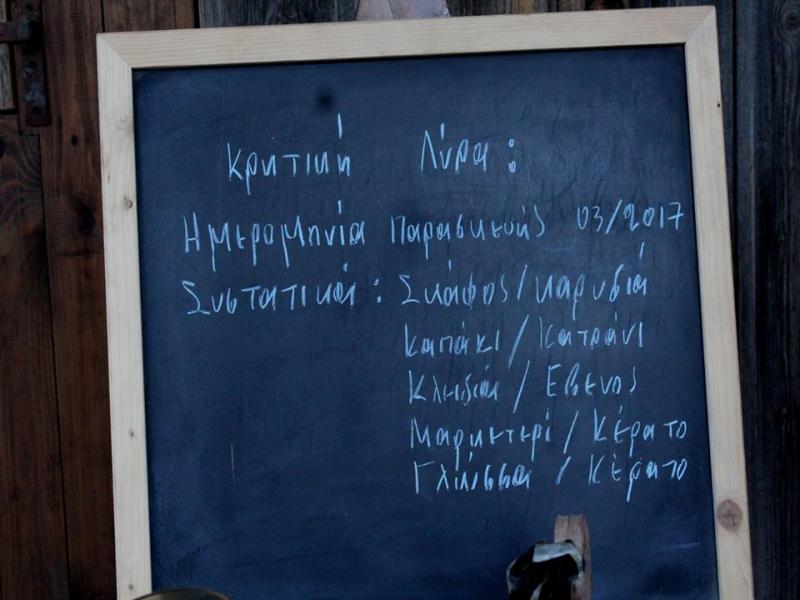 Κρητική Λύρα:
Ημερομηνία Παρασκευής 03/2017
Συστατικά: Σκάφος/Καρυδιά
Καπάκι/Κατράνι
Κλειδιά/Εβενος
Μαρκετερί/Κέρατο
Γλώσσα/Κέρατο